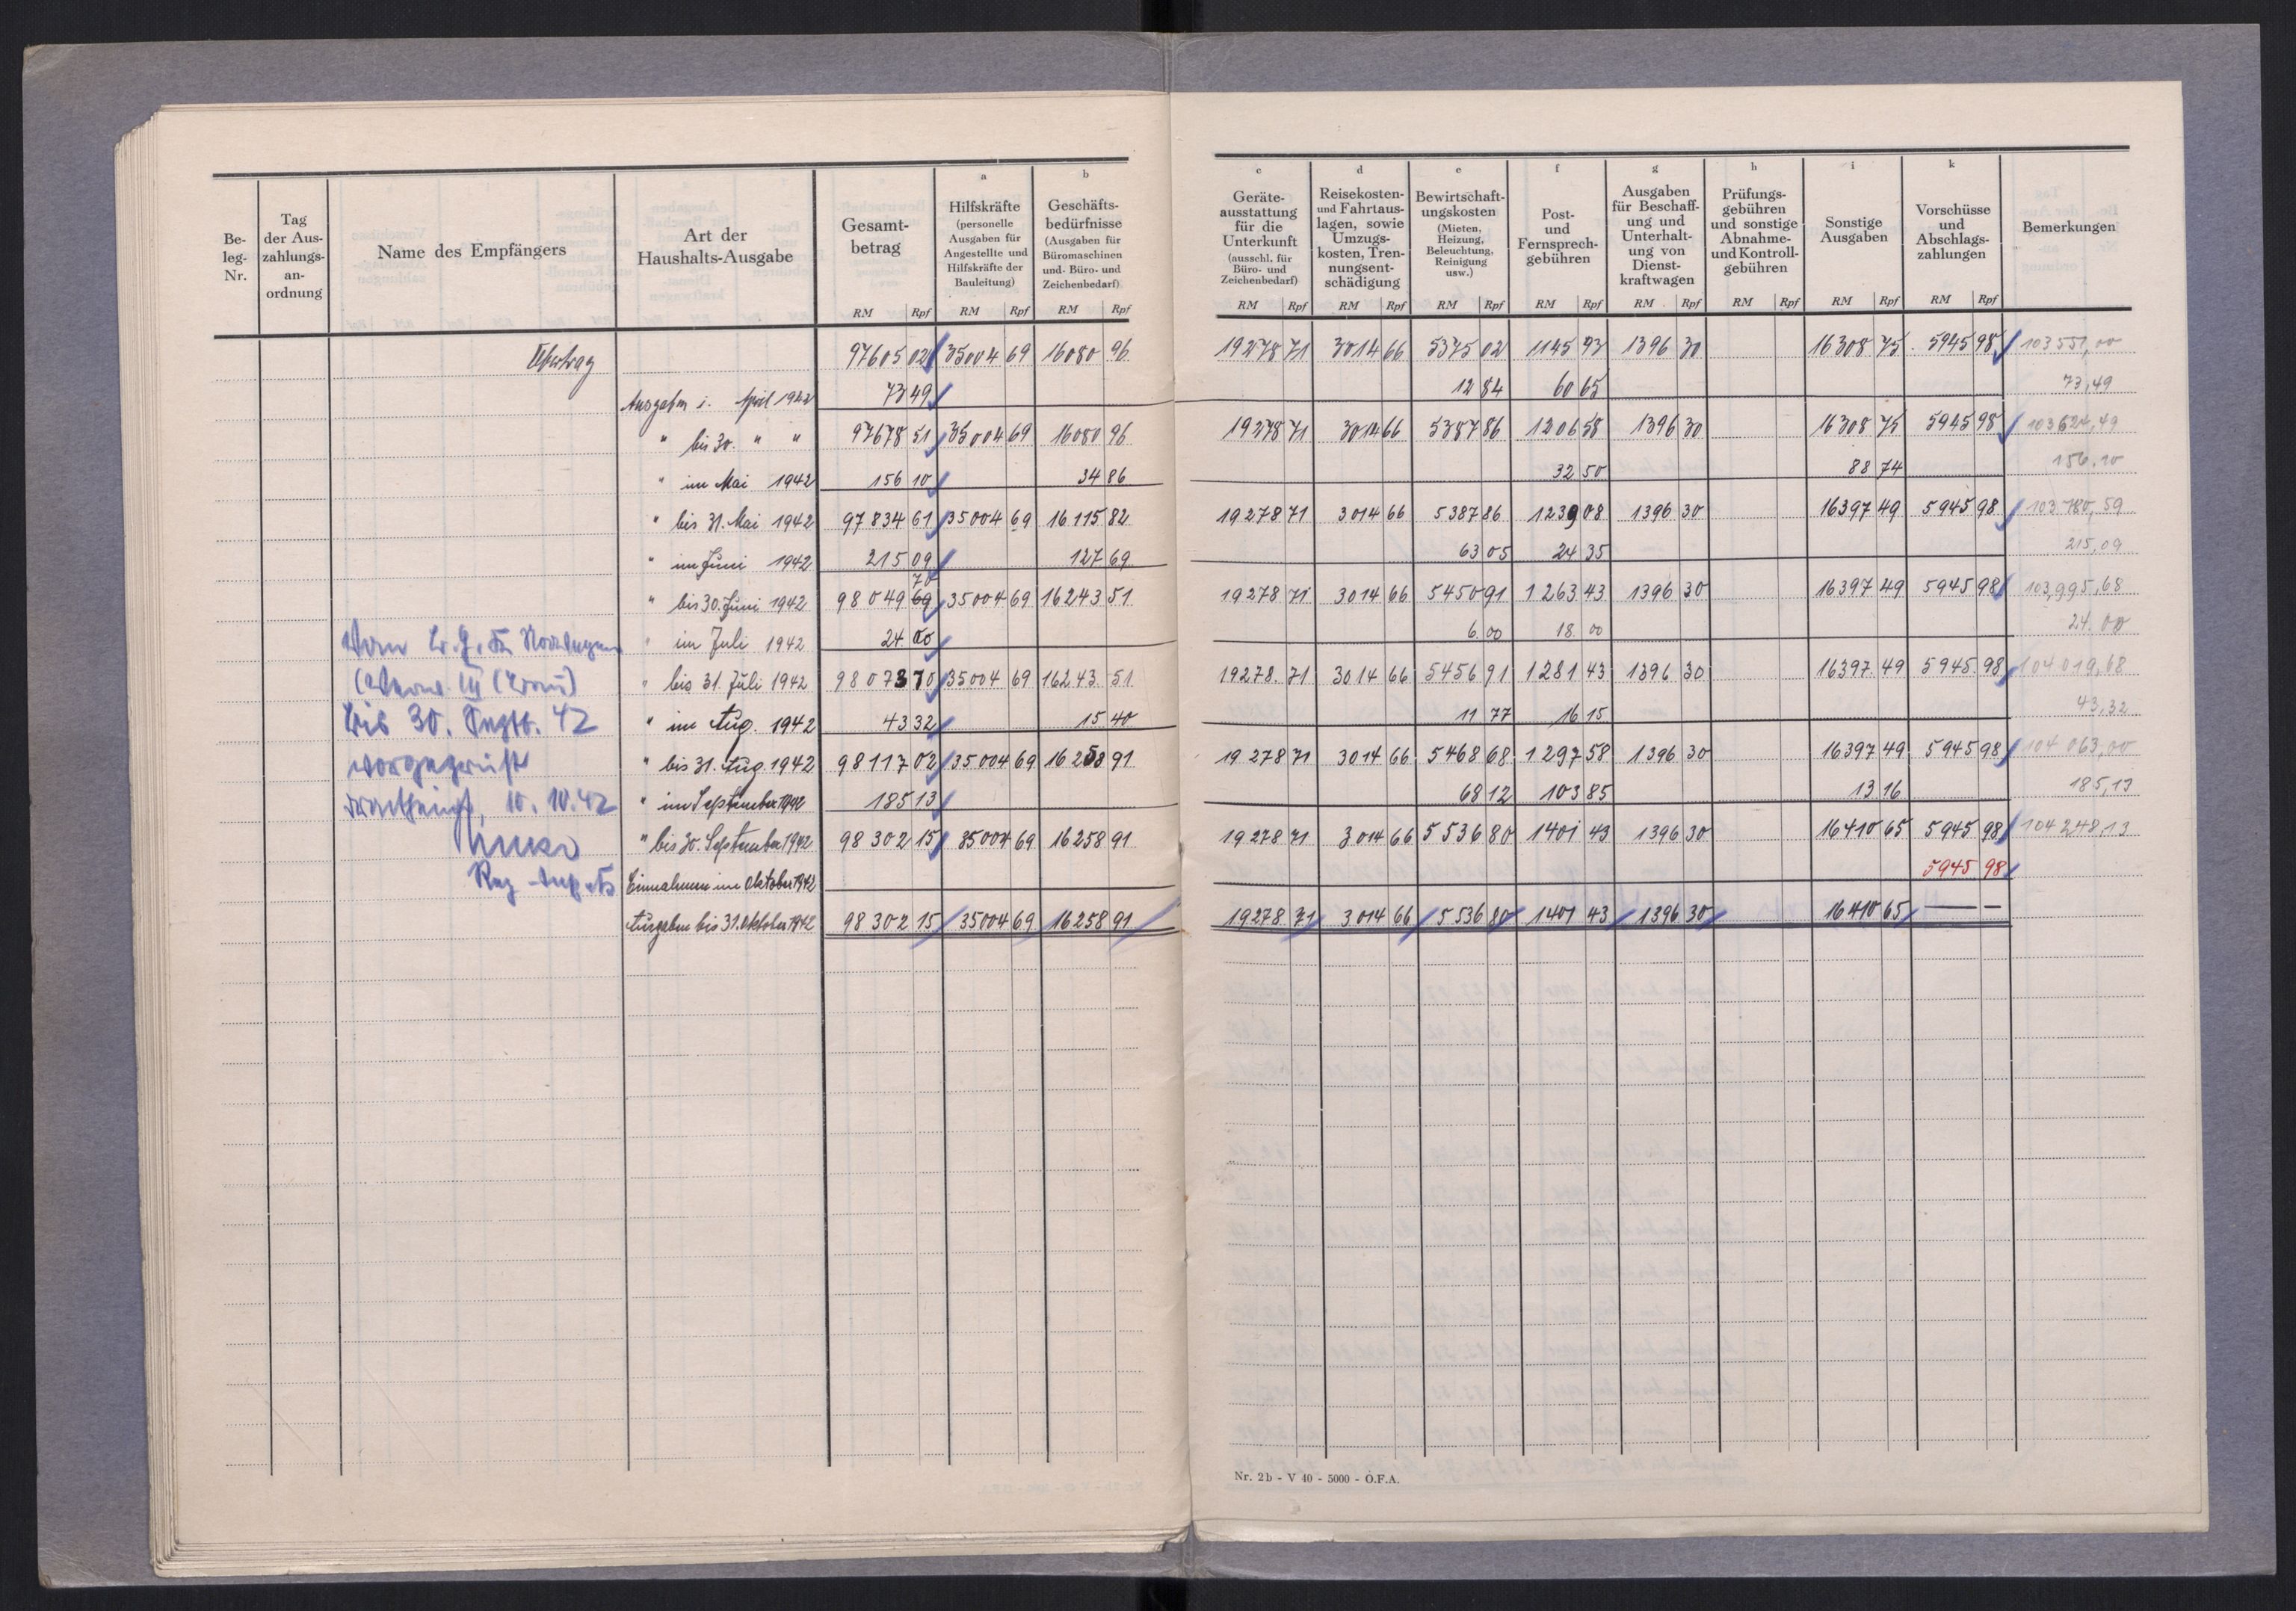 Be-
leg-
Nr.
Tag
der Aus-
zahlungs-
an-
ordnung
Name des Empfängers
Art der
Haushalts-Ausgabe
Gesamt-
betrag
RM Rpf
a
Hilfskräfte
(personelle
Ausgaben für
Angestellte und
Hilfskräfte der
Bauleitung)
RM Rpf
b
Geschäfts-
bedürfnisse
(Ausgaben für
Büromaschinen
und- Büro- und
Zeichenbedarf)
RM Rpf
c
Geräte-
ausstattung
für die
Unterkunft
(ausschl. für
Büro- und
Zeichenbedarf)
RM Rpf
d
Reisekosten-
und Fahrtaus-
lagen, sowie
Umzugs-
kosten, Tren-
nungsent-
schädigung
RM Rpf
e
Bewirtschaft-
ungskosten
(Mieten,
Heizung,
Beleuchtung,
Reinigung
usw.)
RM Rpf
f
Post-
und
Fernsprech-
gebühren
RM Rpf
g
Ausgaben
für Beschaff-
ung und
Unterhalt-
ung von
Dienst-
kraftwagen
RM Rpf
h
Prüfungs-
gebühren
und sonstige
Abnahme-
und Kontroll-
gebühren
RM Rpf
i
Sonstige
Ausgaben
RM Rpf
k
Vorschüsse
und
Abschlags-
zahlungen
RM Rpf
Bemerkungen
Übertrag 97605 02 35004 69 16080 96 19278 71 3014 66 5375 02 1145 93 1396 30 16308 75 5945 98 103551,00
Ausgaben i. April 1942 73 49 12 84 60 65 73,49
" bis 30. " " 97678 51 35004 69 16080 96 19278 71 3014 66 5387 86 1206 58 1396 30 16308 75 5945 98 103624,49
" im Mai 1942 156 10 34 86 32 50 88 74 156.10
" bis 31. Mai 1942 97834 61 35004 69 16115 82 19278 71 3014 66 5387 86 1239 08 1396 30 16397 49 5945 98 103780,59
" im Juni 1942 215 09 127 69 63 05 24 35 215,09
" bis 30. Juni 1942 98049 69 70 35004 69 16243 51 19278 71 3014 66 5450 91 1263 43 1396 30 16397 49 5945 98 103,995,68
" im Juli 1942 24 00 6 00 18 00 24.00
" bis 31. Juli 1942 98073 70 35004 69 16243 51 19278 71 3014 66 5456 91 1281 43 1396 30 16397 49 5945 98 104019,68
bis 30. Septb. 42 " im Aug. 1942 43 32 15 40 11 77 16 15 43,32
" bis 31. Aug. 1942 98117 02 35004 69 16258 91 19278 71 3014 66 5468 68 1297 58 1396 30 16397 49 5945 98 104063,00
10.10.42 " im September 1942 185 13 68 12 103 85 13 16 185,13
" bis 30. September 1942 98302 15 35004 69 16258 91 19278 71 3014 66 5536 80 1401 43 1396 30 16410 65 5945 98 104248,13
Einnahmen im Oktober 1942 5945 98
Ausgaben bis 31. Oktober 1942 98302 15 35004 69 16258 91 19278 71 3014 66 5536 80 1401 43 1396 30 16410 65 — —
Nr. 2b - V 40 - 5000 - O.F.A.